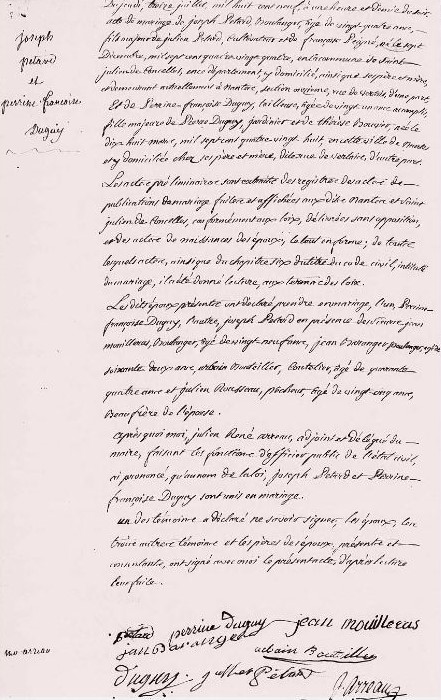 joseph
petard
et
perrine-françoise
Duguy
Du jeudi, treize juillet, mil huit cent neuf, à une heure et demie du soir,
acte de mariage de joseph Petard, Boulanger, âgé de vingt quatre ans,
fils majeur de julien Petard, Cultivateur et de françoise né le sept
Décembre, mil sept cent quatre vingt quatre, en la commune de Saint
julien de Concelles, en ce département y domicilié, ainsi que ses père et mère,
et demeurant actuellement à Nantes, section d'une part
Et de Perrine-françoise Duguy, tailleuse, âgée de vingt un ans accomplis,
fille majeure de Pierre Duguy, jardinier et de thérèse née le
dix huit mars, mil sept cent quatre vingt huit, en cette ville de Nantes
et y domiciliée chez ses père et mère, d'autre part.
Les actes préliminaires sont extraits des registres des actes de
publications de mariage faites et affichées aux dits Nantes et Saint
julien de Concelles, conformément aux loix, délivrées sans opposition,
et des actes de naissances des époux, le tout en forme; de toute
lesquels actes, ainsi que du chapitre six du titre du code civil, intitulé
du mariage, il a été donné lecture, aux termes des loix.
Les dits époux présents ont déclaré prendre en mariage, l'un, Perrine
françoise Duguy, l'autre, joseph Petard en présence de jean
mouilleras, Boulanger, âgé de vingt neuf ans, jean Boulanger, âgé de
soixante deux ans, urbain âgé de quarante
quatre ans et julien Rousseau, pêcheur, âgé de vingt cinq ans,
Beau frère de l'épouse.
après quoi moi, julien René arreau, adjoint et délégué du
maire, faisant les fonctions d'officier public de l'état civil,
ai prononcé, qu'au nom de la loi, joseph Petard et Perrine-
françoise Duguy sont unis en mariage.
un des témoins a déclaré ne savoir signer, les époux, les
trois autres témoins et les pères des époux, présents et
consentants, ont signé avec moi le présent acte, d'après lecture
leur faite.
petard perrine duguy jean mouilleras
urbain
duguy Pétard
arreau